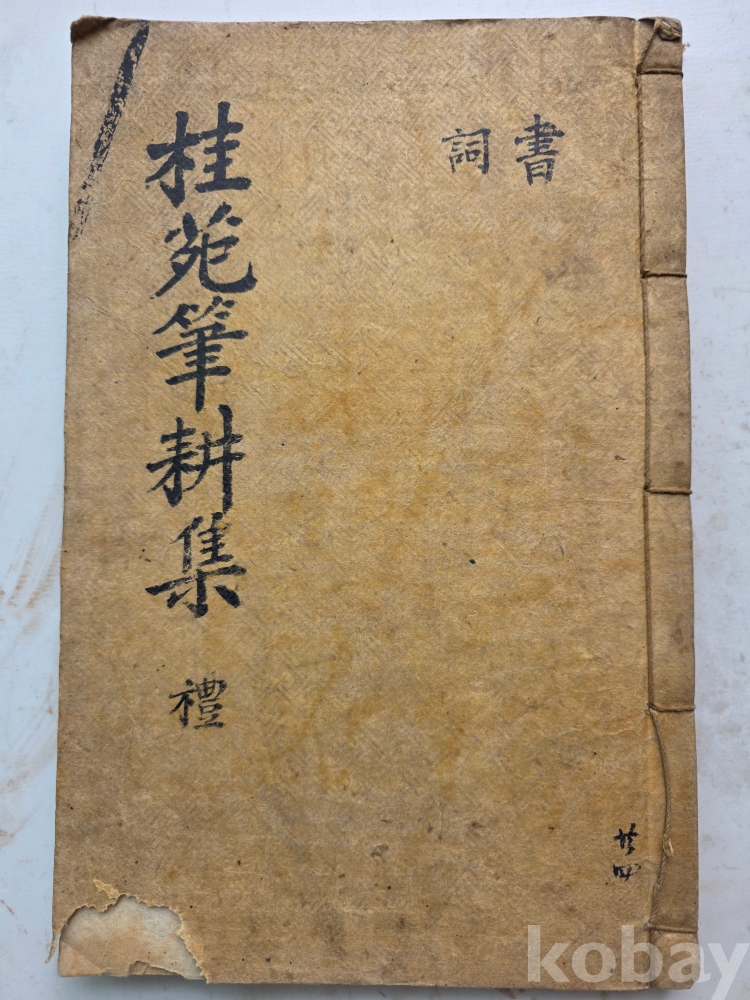 書
詞
桂苑筆耕集 禮
廿四
kobay